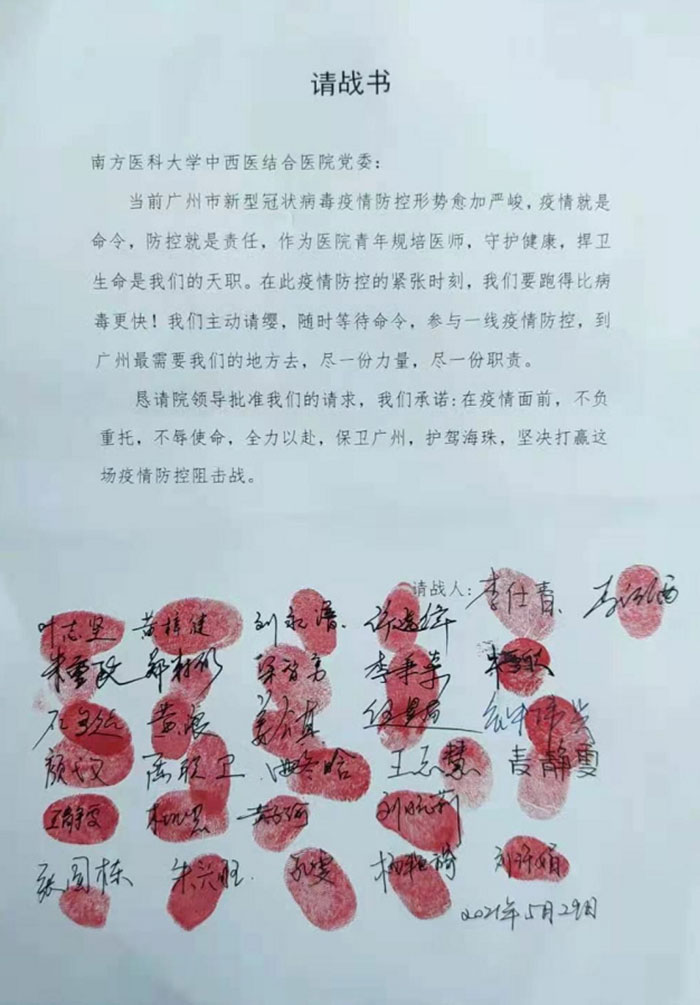 请战书
南方医科大学中西医结合医院党委：
当前广州市新型冠状病毒疫情防控形势愈加严峻，疫情就是
命令，防控就是责任，作为医院青年规培医师，守护健康，捍卫
生命是我们的天职。在此疫情防控的紧张时刻，我们要跑得比病
毒更快！我们主动请缨，随时等待命令，参与一线疫情防控，到
广州最需要我们的地方去，尽一份力量，尽一份职责。
恳请院领导批准我们的请求，我们承诺：在疫情面前，不负
重托，不辱使命，全力以赴，保卫广州，护驾海珠，坚决打赢这
场疫情防控阻击战。
请战人：李仕青
叶志坚 黄梓健
王志慧 麦静雯
张国栋 朱兴旺 刘诗娟
2021年5月29日